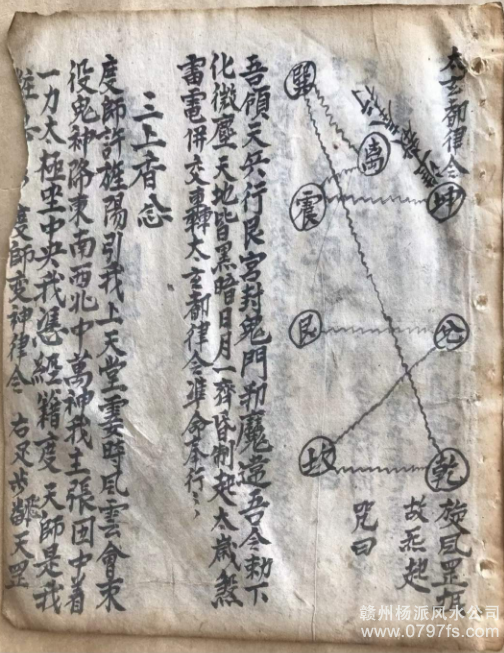 太玄都律令
坤
兌
乾
離
震
艮
坎
旋風罡相
故炁起
咒曰
吾領天兵行艮宮封鬼門刑魔違吾令勅下
化微塵天地皆黑暗日月一齊昏制起太歲煞
雷電併交轟太玄都律令準命奉行
三上香念
度師許旌陽引我上天堂霎時風雲會東
役鬼神降東南西北中萬神我主張固中着
一力太極坐中央我憑經籍度天師是我
度師变神律令 右足 天罡
赣州杨派风水公司
www.0797fs.com